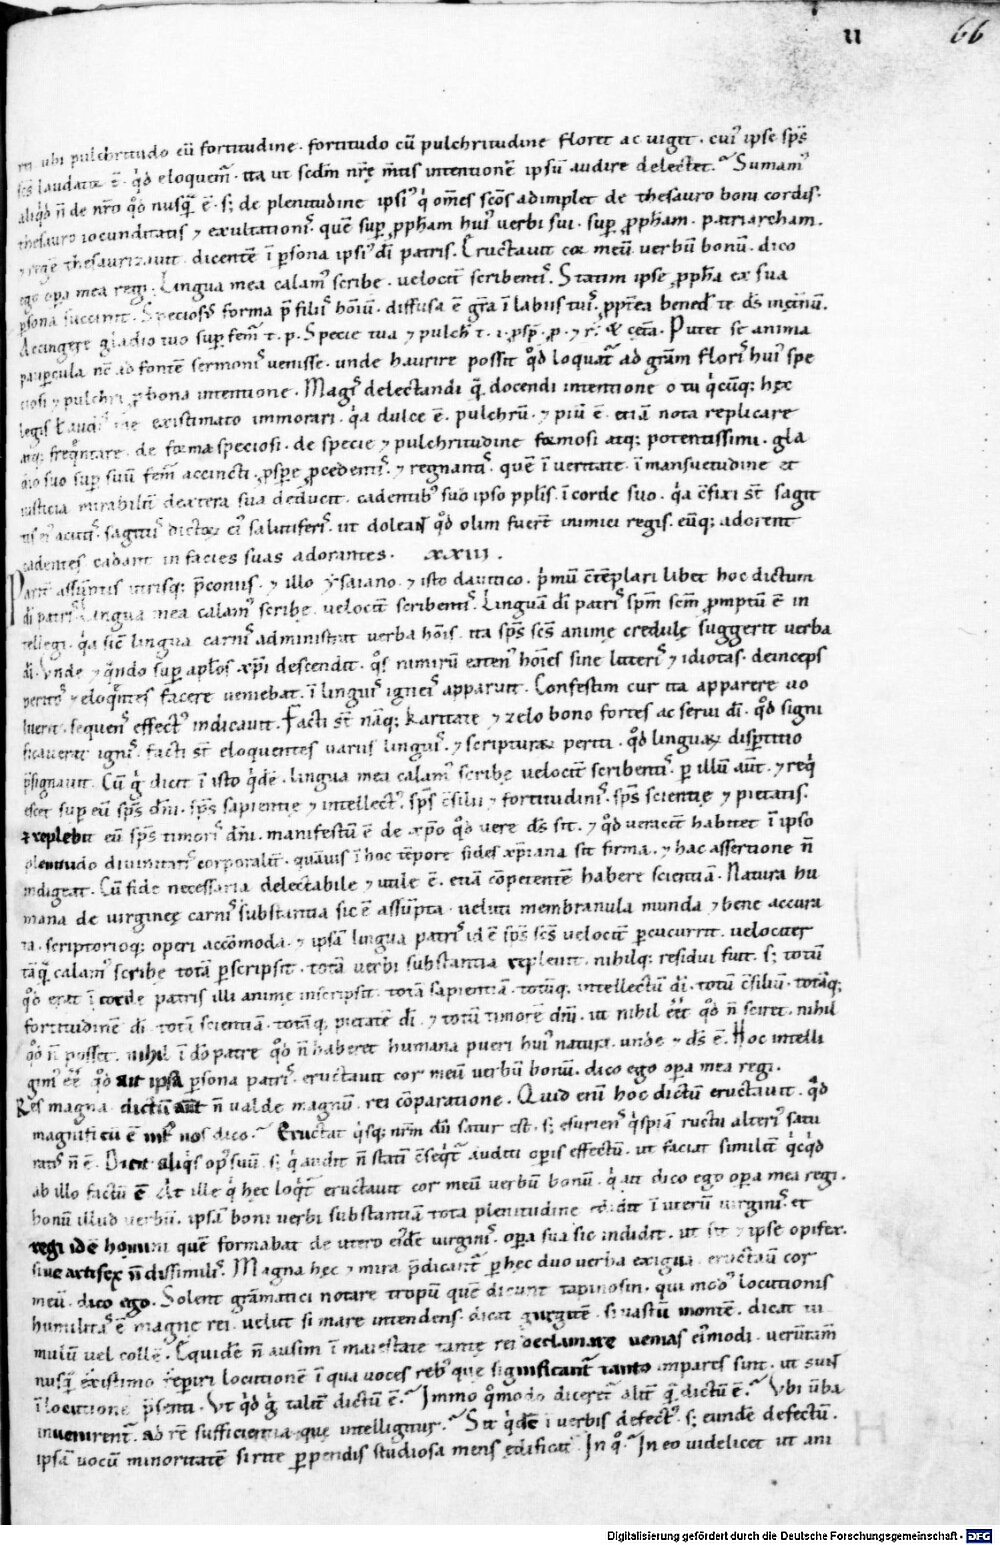 II 66
rei. ubi pulchritudo cū fortitudine. fortitudo cū pulchritudine floret ac uiget. cuiꝰ ipse sp̄s
sc̄s laudator ē. q̇d eloquem̄. ita ut scdm̄ nr̄ę m̄tis intentionē ipsū audire delectet. Sumamꝰ
aliq̇d n̄ de nr̄o q̊d nusq̄ ē. s; de plenitudine ipsiꝰ q̇ om̄es sc̄os adimplet de thesauro boni cordis.
thesauro iocunditatis ⁊ exultationiˢ. quē suꝑ ꝓph̄am huiꝰ uerbi sui. suꝑ ꝓph̄am. patriarcham.
⁊ regē thesaurizauit. dicentē ī ꝑsona ipsiꝰ dī patris. Eructauit cor meū uerbū bonū. dico
ego oꝑa mea regi. Lingua mea calamꝰ scribę. uelocit̄ scribentiˢ. Statim ipse ꝓph̄a ex sua
ꝑsona succinit. Speciosꝰ forma p̄ filiis hoīū. diffusa ē gr̄a ī labiis tuiˢ. ꝓpt̄ea bened̄ te d̄s inęt̄nū.
Accingere gladio tuo suꝑ fem̄ t. p. Specie tua ⁊ pulch̄ t. i. ꝓsꝑ. ꝓ. ⁊ r. & cet̄a. Putet se anima
pauꝑcula nc̄ ad fontē sermoniˢ uenisse. unde haurire possit q̊d loquat᷑ ad gr̄am floriˢ huiꝰ spe
ciosi ⁊ pulchri ꝓ bona intentione. Magiˢ delectandi q̄ docendi intentione o tu q̇cūq; hęc
legis ł audis me existimato immorari. q̇a dulce ē. pulchrū. ⁊ piū ē. etiā nota replicare
atq; freq̇ntare. de forma speciosi. de specie ⁊ pulchritudine formosi atq; potentissimi. gla
dio suo suꝑ suū fem̄ accincti. ꝓsꝑe ꝓcedentiˢ. ⁊ regnantiˢ. quē ī ueritate. ī mansuetudine et
iusticia mirabilit̄ dextera sua deducit. cadentibꝰ sub ipso ppl̄is. ī corde suo. q̇a c̄fixi st̄ sagit
tis eiꝰ acutiˢ. sagittiˢ dictorꝝ eiꝰ salutiferiˢ. ut doleant q̊d olim fuer̄t inimici regis. eūq; adorent
cadentes cadant in facies suas adorantes. XXIII.
Parit̄ assūptis utrisq; p̄coniis. ⁊ illo ysaiano. ⁊ isto dauitico. ṗmū c̄tēplari libet hoc dictum
dī patriˢ. Lingua mea calamꝰ scribę. uelocit̄ scribentiˢ. Linguā dī patriˢ sp̄m sc̄m ꝓmptū ē in
tellegi. q̇a sic̄ lingua carniˢ administrat uerba hoīs. ita sp̄s sc̄s animę credulę suggerit uerba
dī. Unde ⁊ q̇ndo suꝑ apl̄os xp̄i descendit. q̇s nimirū eatenꝰ hoīes sine litteriˢ ⁊ idiotas. deinceps
peritoˢ ⁊ eloq̇ntes facere ueniebat. ī linguiˢ igneiˢ apparuit. Confestim cur ita apparere uo
luerit. sequenˢ effectꝰ indicauit. Facti st̄ nāq; karitate ⁊ zelo bono fortes ac serui dī. q̊d signi
ficauerat igniˢ. facti st̄ eloquentes uariis linguiˢ. ⁊ scripturarꝝ periti. q̊d linguarꝝ disꝑtitio
p̄signauit. Cū g̊ dicit ī isto q̇dē. lingua mea calamꝰ scribę uelocit̄ scribentiˢ. ꝑ illū aūt. ⁊ req̇
escet suꝑ eū sp̄s dn̄i. sp̄s sapientię ⁊ intellectꝰ. sp̄s c̄silii ⁊ fortitudiniˢ. sp̄s scientię ⁊ pietatis.
⁊ replebit eū sp̄s timoriˢ dn̄i. manifestū ē de xp̄o q̊d uere d̄s sit. ⁊ q̊d ueracit̄ habitet ī ipso
plenitudo diuinitatiˢ corporalit̄. quāuis ī hoc tēpore fides xp̄iana sit firma. ⁊ hac assertione n̄
indigeat. Cū fide necessaria delectabile ⁊ utile ē. etiā cōpetentē habere scientiā. Natura hu
mana de uirginęę carniˢ substantia sic ē assūpta. ueluti membranula munda ⁊ bene accura
ta. scriptorioq; operi accōmoda. ⁊ ipsā lingua patriˢ id ē sp̄s sc̄s uelocit̄ ꝑcucurrit. uelociter
tāq̄ calamꝰ scribę totā ꝑscripsit. totā uerbi substantia repleuit. nihilq; residui fuit. s; totū
q̊d erat ī corde patris illi animę inscripsit. totā sapientiā. totūq; intellectū dī. totū c̄siliū. totāq;
fortitudinē dī. totā scientiā. totāq; pietatē dī. ⁊ totū timorē dn̄i. ut nihil eēt q̊d n̄ sciret. nihil
q̊d n̄ posset. nihil ī dō patre q̊d n̄ haberet humana pueri huiꝰ natura. unde ⁊ d̄s ē. Hoc intelli
gimꝰ eē q̊d ait ipsa ꝑsona patriˢ. eructauit cor meū uerbū bonū. dico ego oꝑa mea regi.
Res magna. dictū aūt n̄ ualde magnū. rei cōparatione. Quid enī hoc dictū eructauit. q̊d
magnificū ē int̄ nos dico. Eructat q̇sq; nr̄m dū satur est. s; esurienˢ q̇spiā ructu alteriꝰ satu
ratꝰ n̄ ē. Dicit aliq̇s opꝰ suū. s; q̇ audit n̄ statī c̄seq̇t᷑ auditi oꝑis effectū. ut faciat similit̄ q̇cq̇d
ab illo factū ē. At ille q̇ hęc loq̇t᷑ eructauit cor meū uerbū bonū. q̇ ait dico ego oꝑa mea regi.
bonū illud uerbū. ipsā boni uerbi substantiā tota plenitudine edidit ī uterū uirginiˢ. et
regi idē homini quē formabat de utero eiꝰdē uirginiˢ. oꝑa sua sic indidit. ut sit ⁊ ipse opifex.
siue artifex n̄ dissimiliˢ. Magna hęc ⁊ mira p̄dicant᷑ ꝑ hęc duo uerba exigua. eructauit cor
meū. dico ego. Solent gr̄amatici notare tropū quē dicunt tapinosin. qui modꝰ locutionis
humilitaˢ ē magnę rei. uelut si mare intendens. dicat gurgitē. si uastū montē. dicat tu
mulū uel collē. Equidē n̄ ausim ī maiestate tantę rei declinare uenias eiꝰmodi. uerūtam̄
nusq̄ existimo reꝑiri locutionē ī qua uoces rebꝰ quę significant᷑ tanto impares sint. ut suis
ī locutionē p̄senti. Ut q̇d g̊ talit̄ dictū ē. Immo q̊modo diceret᷑ alit̄ q̄ dictū ē. Ubi uba
inuenirent᷑. ad rē sufficientia quę intelligitur. Sit q̇dē ī uerbis defectꝰ. s; eundē defectū.
ipsā uocū minoritatē si rite ꝑpendis studiosa mens ędificat᷑. In q̊. In eo uidelicet ut ani
Digitalisierung gefördert durch die Deutsche Forschungsgemeinschaft - DFG